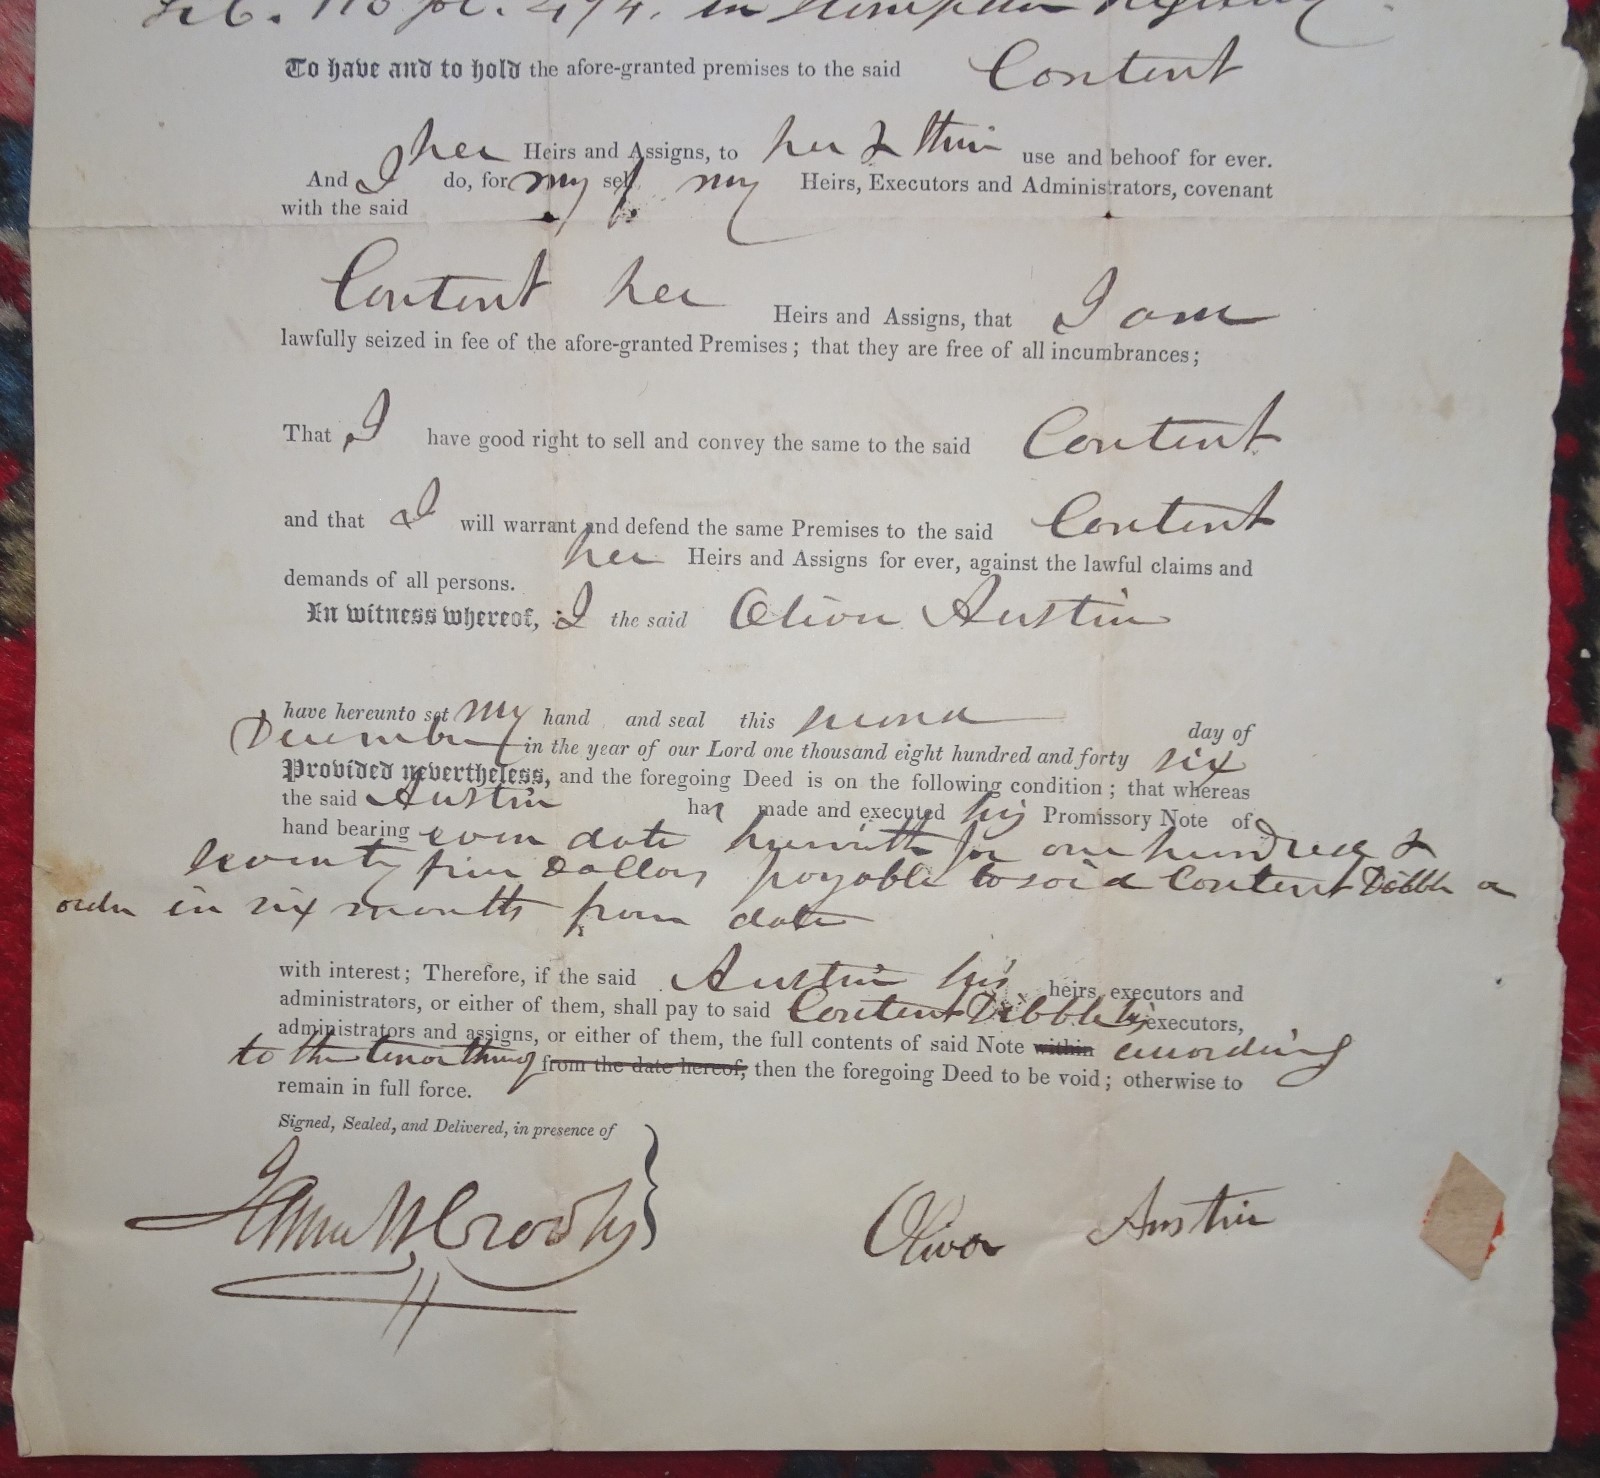 Lib. 116 fol. 474. in Hampden Registry.
To have and to hold the afore-granted premises to the said Content
her Heirs and Assigns, to her & their use and behoof for ever.
And I do, for my self, my Heirs, Executors and Administrators, covenant
with the said
Content her Heirs and Assigns, that I am
lawfully seized in fee of the afore-granted Premises; that they are free of all incumbrances;
That I have good right to sell and convey the same to the said Content
and that I will warrant and defend the same Premises to the said Content
her Heirs and Assigns for ever, against the lawful claims and
demands of all persons.
In witness whereof, I the said Oliver Austin
have hereunto set my hand and seal this second day of
December in the year of our Lord one thousand eight hundred and forty six
Provided nevertheless, and the foregoing Deed is on the following condition; that whereas
the said Austin has made and executed his Promissory Note of
hand bearing even date herewith for one hundred &
seventy five Dollars payable to said Content Dibble or
order in six months from date
with interest; Therefore, if the said Austin his heirs, executors and
administrators, or either of them, shall pay to said Content Dibble executors,
administrators and assigns, or either of them, the full contents of said Note within according
to the tenor thereof from the date hereof, then the foregoing Deed to be void; otherwise to
remain in full force.
Signed, Sealed, and Delivered, in presence of
James W. Crooks } Oliver Austin